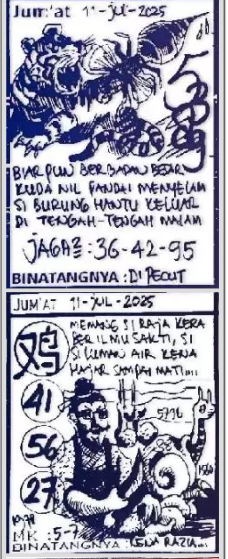 Jum'at 11-Jul-2025
BIARPUN BERBADAN BESAR
KUDA NIL PANDAI MENYELAM
SI BURUNG HANTU KELUAR
DI TENGAH-TENGAH MALAM
JAGA²: 36-42-95
BINATANGNYA: DI PECUT
JUM'AT 11-JUL-2025
鸡
MEMANG SI RAJA KERA
BERILMU SAKTI, SI
SILUMAN AIR KENA
HAJAR SAMPAI MATI...
41
56
27
5796
MK: 5-7
BINATANGNYA: KENA RAZIA...